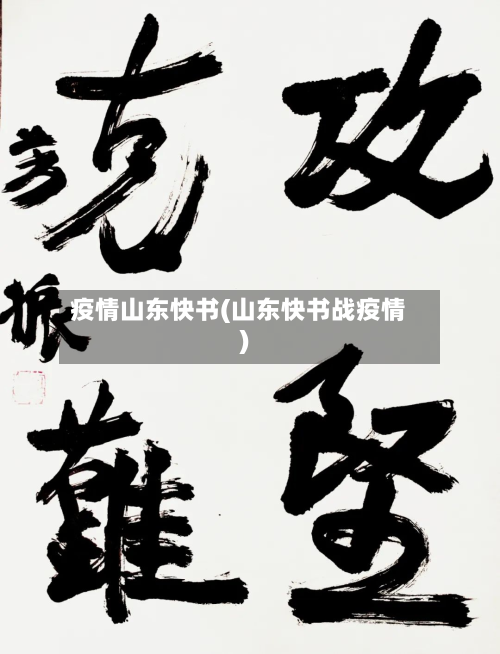 攻坚
克難
芳振
疫情山东快书(山东快书战疫情
)